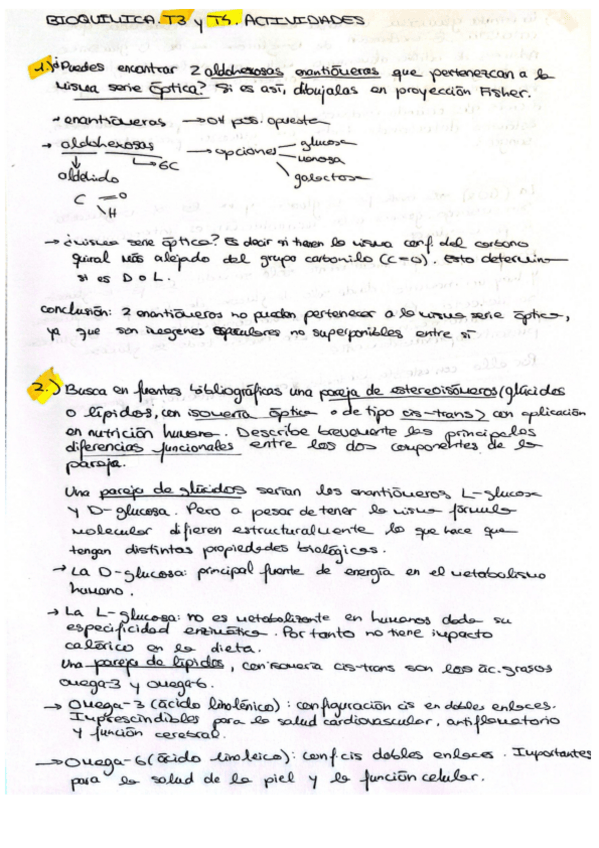 BIOQUIMICA. T3 y T4. ACTIVIDADES
1.) ¿Puedes encontrar 2 aldohexosas enantiómeras que pertenezcan a la
misma serie óptica? Si es así, dibujalas en proyección Fisher.
→ enantiómeros → OH pos. opuesta
→ aldohexosas → opciones glucosa
manosa
galactosa
6C
aldehido
C = O
H
→ ¿misma serie óptica? Es decir si tienen la misma conf del carbono
quiral más alejado del grupo carbonilo (C=O). Esto determina
si es D o L.
Conclusión: 2 enantiómeros no pueden pertenecer a la misma serie óptica,
ya que son imagenes especulares no superponibles entre sí
2.) Busca en fuentes bibliográficas una pareja de estereoisómeros (glúcidos
o lípidos, con isomería óptica o de tipo cis-trans) con aplicación
en nutrición humana. Describe brevemente las principales
diferencias funcionales entre los dos componentes de la
pareja.
Una pareja de glúcidos serían los enantiómeros L-glucosa
y D-glucosa. Pero a pesar de tener la misma fórmula
molecular difieren estructuralmente lo que hace que
tengan distintas propiedades biológicas.
→ La D-glucosa: principal fuente de energía en el metabolismo
humano.
→ La L-glucosa: no es metabolizante en humanos dada su
especificidad enzimática. Por tanto no tiene impacto
calórico en la dieta.
Una pareja de lípidos, con isomería cis-trans son los ác. grasos
omega-3 y omega-6.
→ Omega-3 (ácido linolénico): configuración cis en dobles enlaces.
Imprescindibles para la salud cardiovascular, antiflamatorio
y función cerebral.
→ Omega-6 (ácido linoleico): conf cis dobles enlaces. Importantes
para la salud de la piel y la función celular.